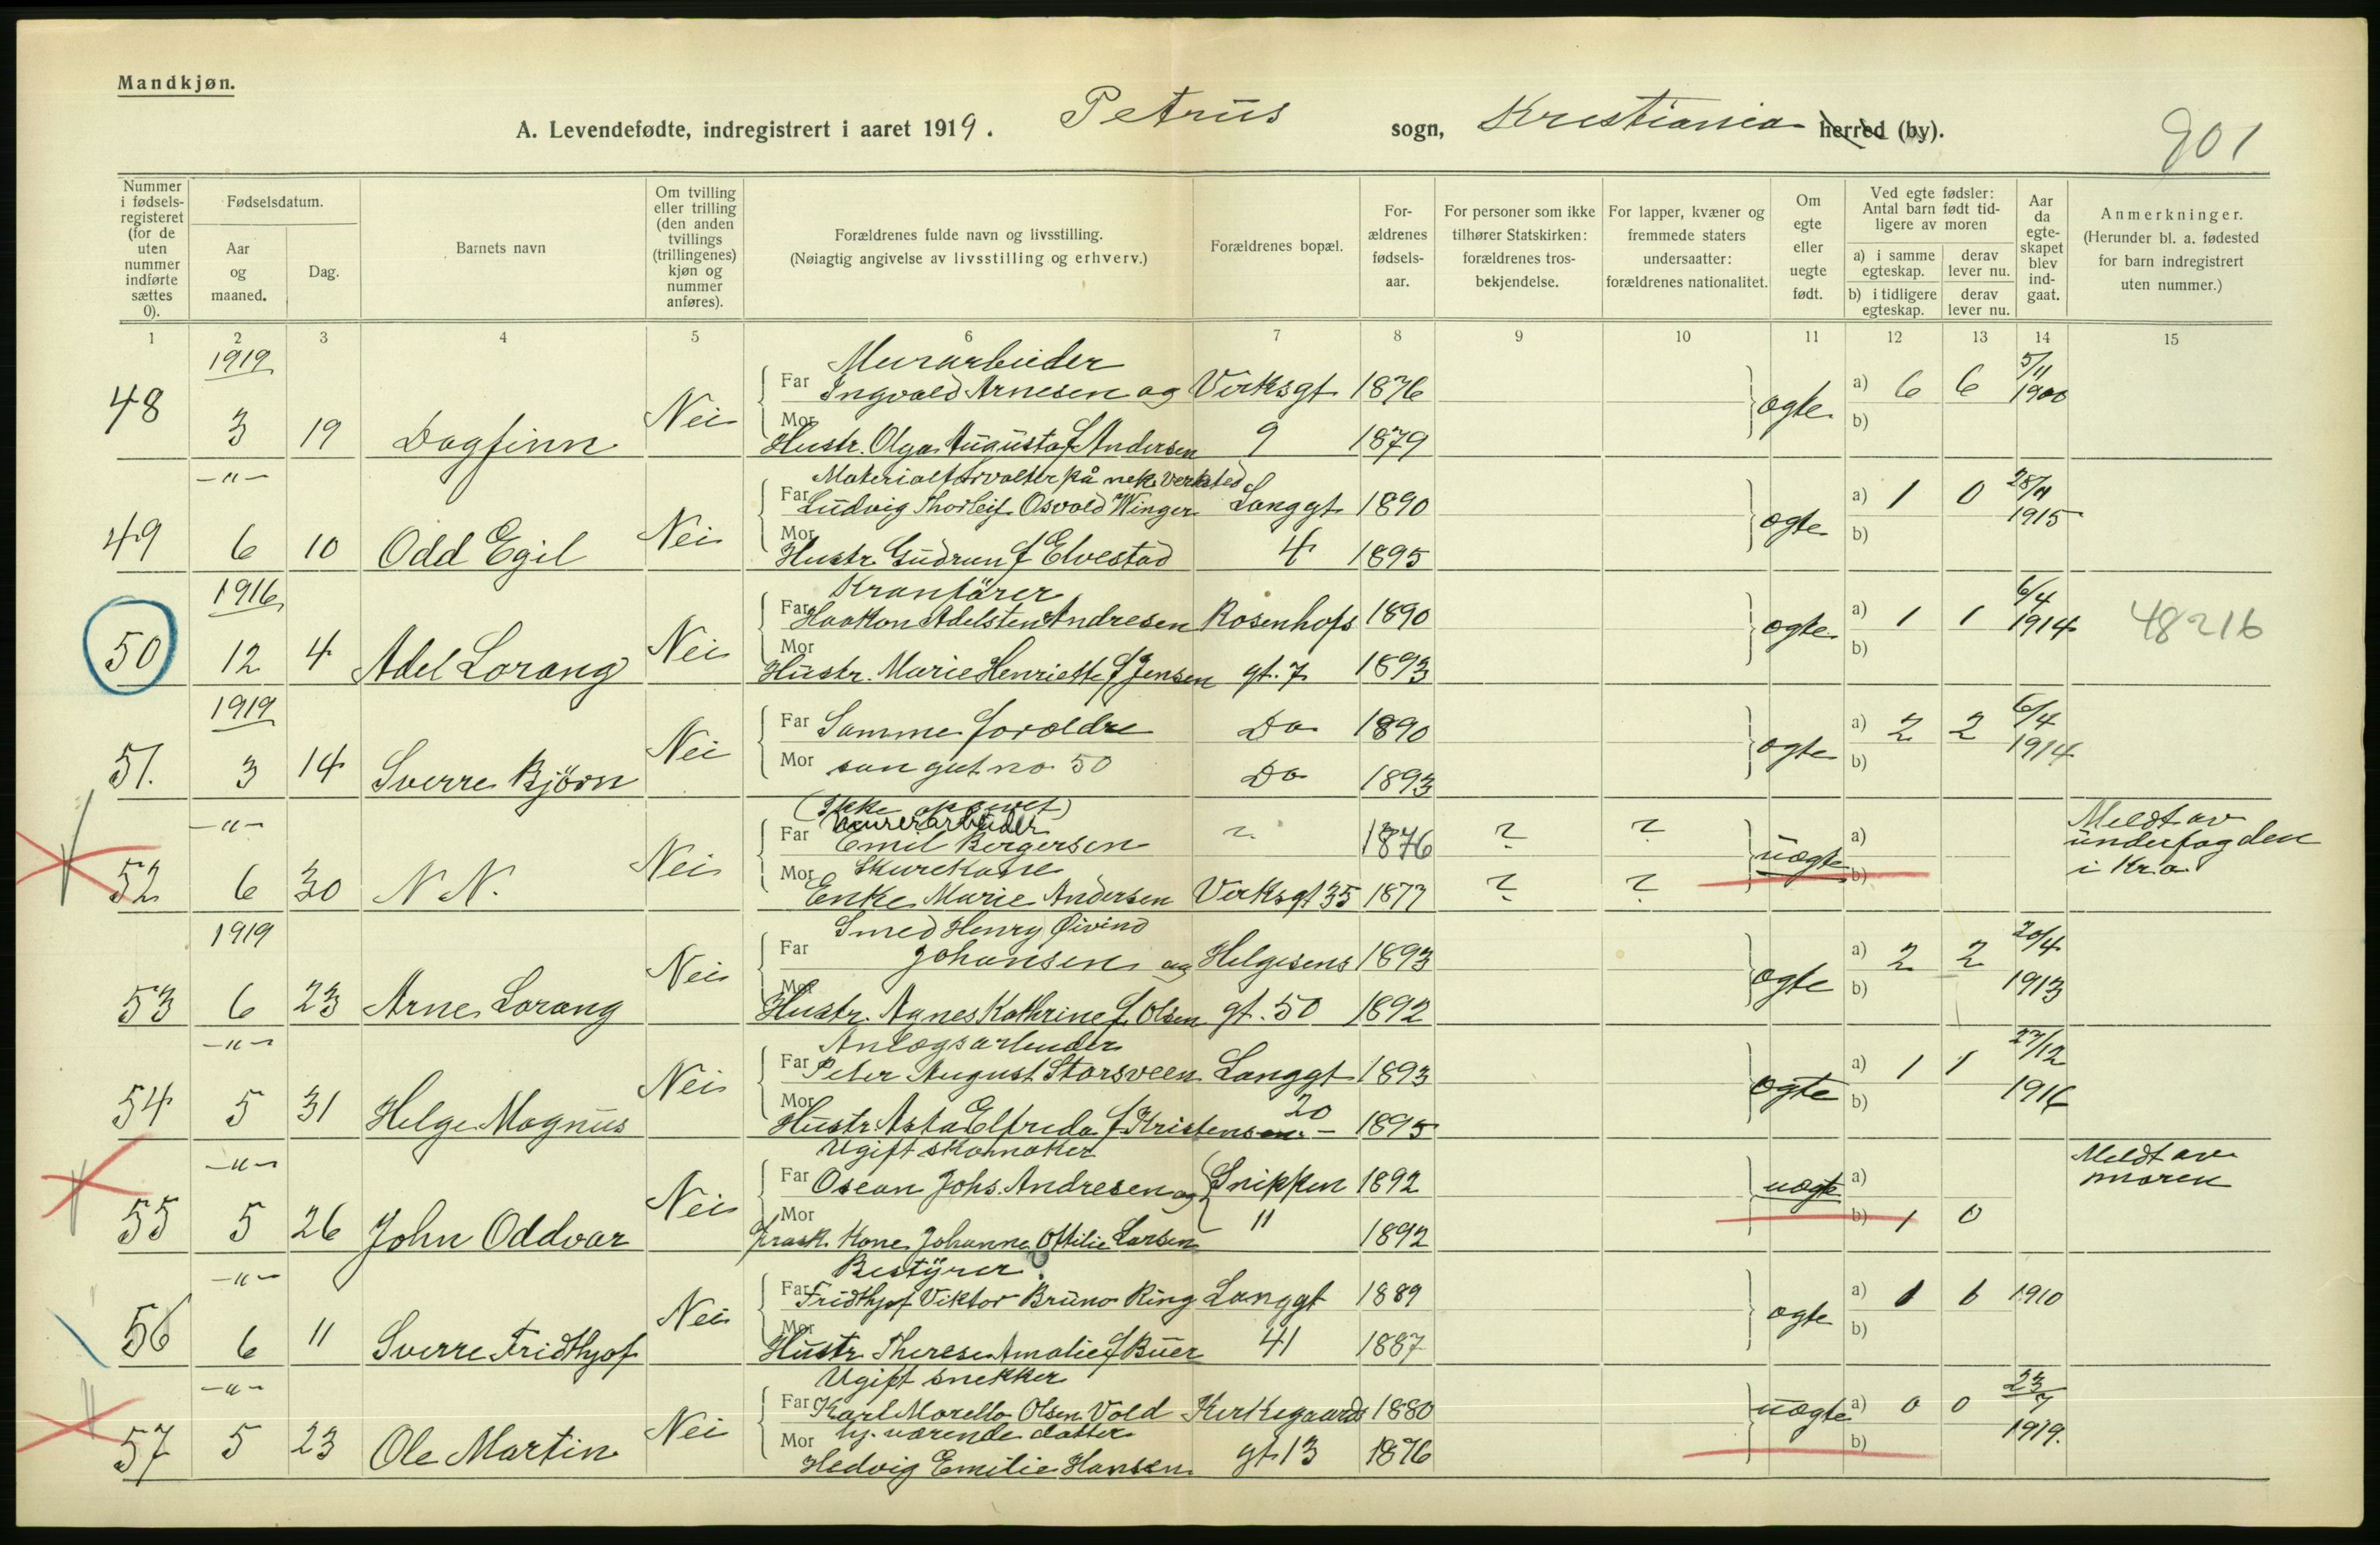 Mandkjøn.
A. Levendefødte, indregistrert i aaret 1919. Petrus sogn, Kristiania herred (by). 901
Nummer i fødsels-registeret (for de uten nummer indførte sættes 0).
Fødselsdatum.
Aar og maaned.
Dag.
Barnets navn
Om tvilling eller trilling (den anden tvillings (trillingenes) kjøn og nummer anføres).
Forældrenes fulde navn og livsstilling.
(Nøiagtig angivelse av livsstilling og erhverv.)
Forældrenes bopæl.
For-ældrenes fødsels-aar.
For personer som ikke tilhører Statskirken: forældrenes tros-bekjendelse.
For lapper, kvæner og fremmede staters undersaatter: forældrenes nationalitet.
Om egte eller uegte født.
Ved egte fødsler: Antal barn født tid-ligere av moren
a) i samme egteskap.
derav lever nu.
b) i tidligere egteskap.
derav lever nu.
Aar da egte-skapet blev ind-gaat.
Anmerkninger.
(Herunder bl. a. fødested for barn indregistrert uten nummer.)
1 2 3 4 5 6 7 8 9 10 11 12 13 14 15
1919 Murarbeider 5/11
48 Far Ingvald Arnesen og Virksgt 1876 a) 6 6 1900
3 19 Dagfinn Nei Mor Hustr. Olga Augusta f Andersen 9 1879 ægte b)
-"- Materialforvalter på mek. verksted
49 Far Ludvig Thorleif Osvald Winger Langgt 1890 a) 1 0 28/11 1915
6 10 Odd Egil Nei Mor Hustr. Gudrun f Elvestad 4 1895 ægte b)
1916 Kranfører 6/4
50 Far Haakon Adelsten Andresen Rosenhofs 1890 a) 1 1 1914 48216
12 4 Adel Lorang Nei Mor Hustr. Marie Henriette f Jensen gt. 7 1893 ægte b)
1919 6/4
51. Far Samme forældre Do 1890 a) 2 2 1914
3 14 Sverre Bjørn Nei Mor som gut no 50 Do 1893 ægte b)
-"- (Ikke opgivet) Murerarbeider Meldt av
52 Far Emil Bergersen ? 1876 ? ? a) underfogden
Mor Skurekone i Kr.a
6 30 N N. Nei Enke Marie Andersen Verksgt 35 1877 ? ? uægte b)
1919 Smed Henry Øivind 20/4
53 Far Johansen og Helgesens 1893 a) 2 2 1913
6 23 Arne Lorang Nei Mor Hustr. Agnes Kathrine f. Olsen gt. 50 1892 ægte b)
-"- Anlægsarbeider 27/12
54 Far Peter August Storsveen Langgt 1893 a) 1 1 1916
5 31 Helge Magnus Nei Mor Hustr. Asta Elfreda f Kristensen 20 1895 ægte b)
-"- Ugift skomaker Meldt av
55 Far Oscar Johs. Andresen og Snippen 1892 a) moren
5 26 John Oddvar Nei Mor Frask. Kone Johanne Ottilie Larsen 11 1892 uægte b) 1 0
-"- Bestyrer
56 Far Fridthjof Viktor Bruno Ring Langgt 1889 a) 1 1 1910
6 11 Sverre Fridthjof Nei Mor Hustr. Therese Amalie f Buer 41 1887 ægte b)
-"- Ugift snekker 23/7
57 Far Karl Morello Olsen Vold Kirkegaards 1880 a) 0 0 1919.
Mor hj. værende datter
5 23 Ole Martin Nei Hedvig Emilie Hansen gt 13 1876 uægte b)